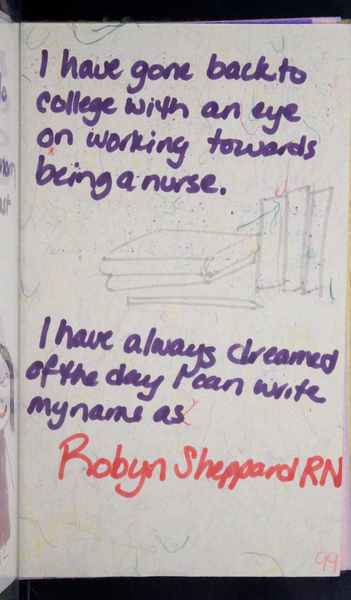 I have gone back to
college with an eye
on working towards
being a nurse.
I have always dreamed
of the day I can write
my name as
Robyn Sheppard RN
99